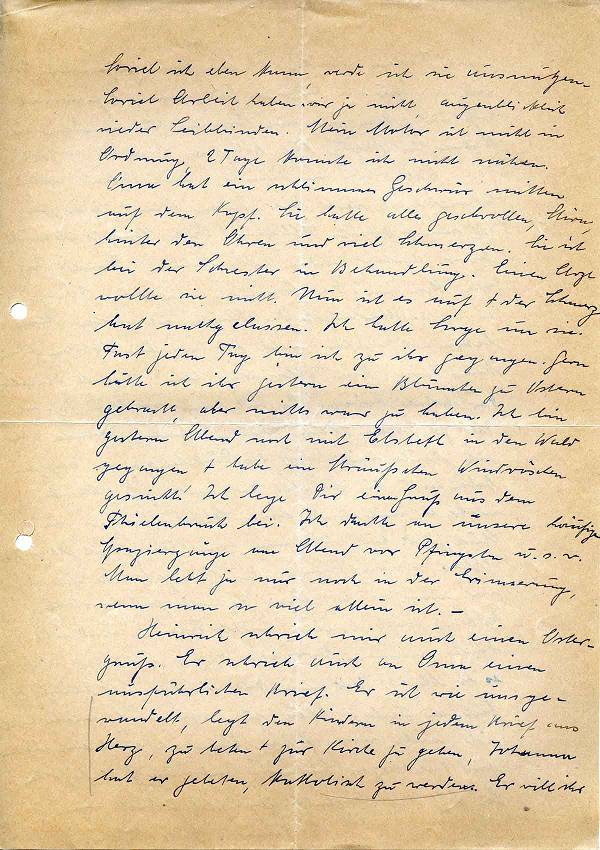 Soviel ich eben kann, werde ich sie ausnützen.
Soviel Arbeit haben wir ja nicht augenblicklich
wieder Leibbinden. Mein Motor ist nicht in
Ordnung, 2 Tage konnte ich nicht nähen.
Oma hat ein schlimmes Geschwür mitten
auf dem Kopf. Sie hatte alles geschwollen, Stirn,
hinter den Ohren und viel Schmerzen. Sie ist
bei der Schwester in Behandlung. Einen Arzt
wollte sie nicht. Nun ist es auf + der Schmerz
hat nachgelassen. Ich hatte Sorge um sie.
Fast jeden Tag bin ich zu ihr gegangen. Gern
hätte ich ihr gestern ein Blümchen zu Ostern
gebracht, aber nichts war zu haben. Ich bin
gestern Abend noch mit Elsbeth in den Wald
gegangen + habe ein Sträußchen Windröschen
gesucht. Ich lege Dir einen Gruß aus dem
Thielenbruch bei. Ich dachte an unsere häufigen
Spaziergänge am Abend vor Pfingsten u.s.w.
Man lebt ja nur noch in der Erinnerung,
wenn man so viel allein ist. –
Heinrich schrieb mir auch einen Oster-
gruß. Er schrieb auch an Oma einen
ausführlichen Brief. Er ist wie umge-
wandelt, legt den Kindern in jedem Brief ans
Herz, zu beten + zur Kirche zu gehen, Johanna
hat er gebeten, katholisch zu werden. Er will